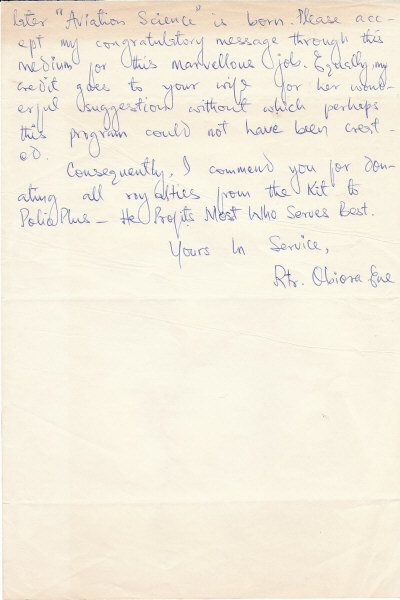 later "Aviation Science" is born. Please acc-
ept my congratulatory message through this
medium for this marvellous job. Equally, my
credit goes to your wife for her wond-
erful suggestion without which perhaps
this program could not have been creat-
ed.
Consequently, I commend you for don-
ating all royalties from the Kit to
PolioPlus — He Profits Most Who Serves Best.
Yours In Service,
Rtr. Obiora Ene